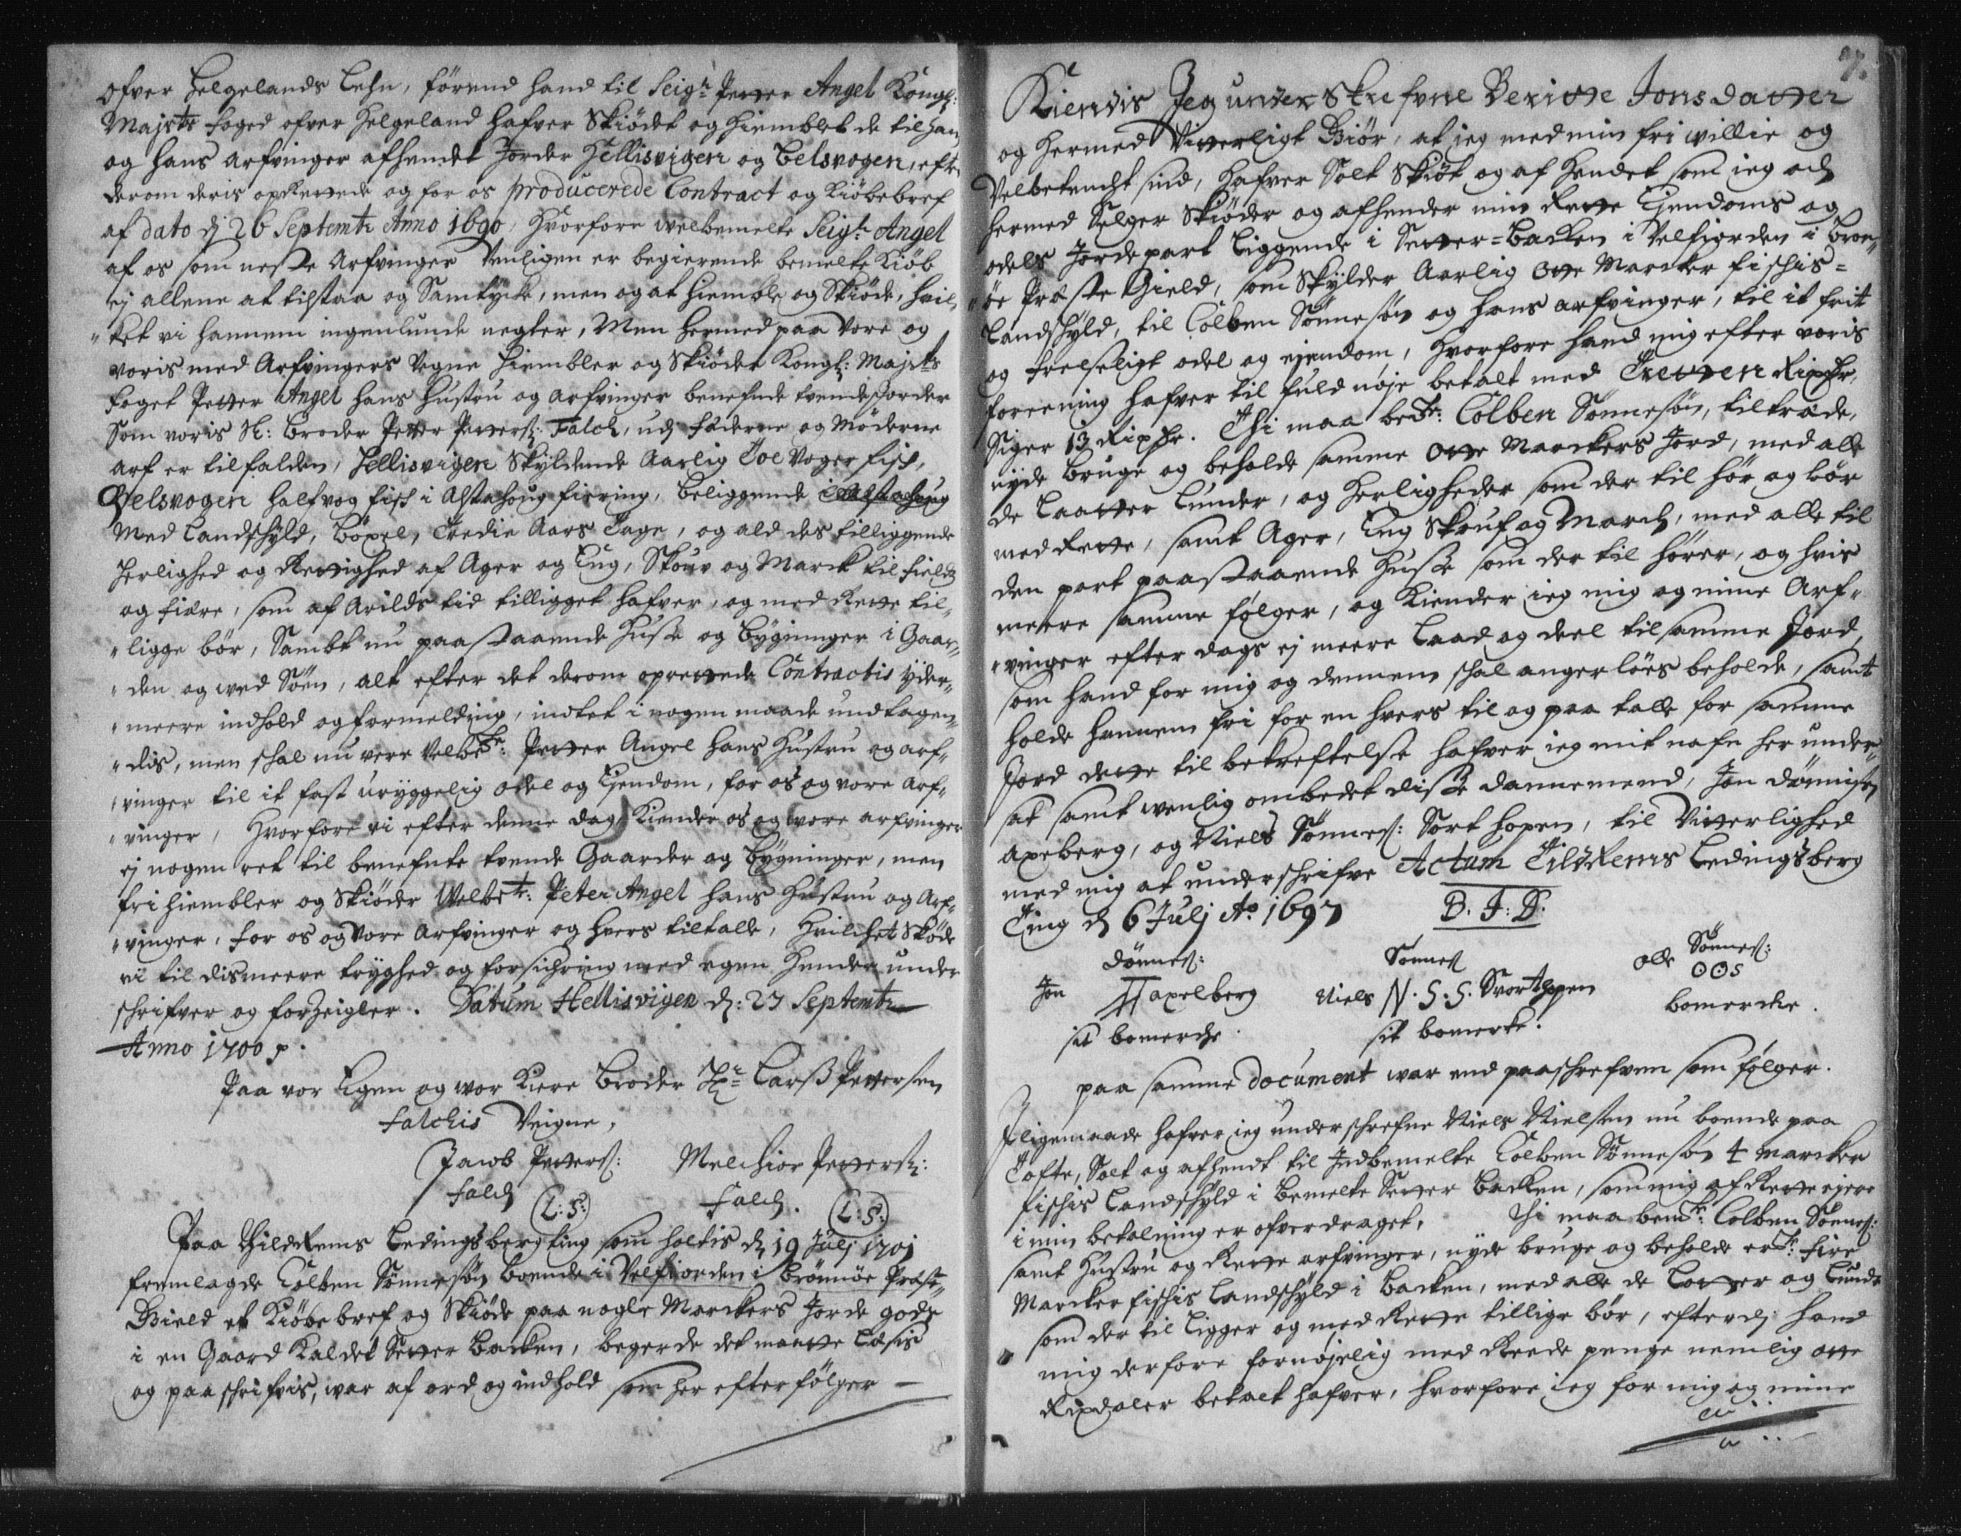 ofver Helgelands Lehn, förend hand til Seigr Petter Angel Kongl:
Majsts foged ofver Helgeland hafver Skiödet og hiemblet de til ham
og hans arfvinger afhendet Jorder Hellisvigen og Belsvogen, efter
derom deris oprettede og for os producerede Contract og Kiöbebref
af dato d 26 Septembr Anno 1690, hvorfore welbemelte Seigr Angel
af os som neste Arfvinger venligen er begierende bemelte Kiöb
ej allene at tilstaa og Samtycke, men og at hiemble og Skiöde, hvil-
"ket vi hannem ingenlunde negter, Men hermed paa vore og
voris med Arfvingers Vegne hiembler og Skiöder Kongl: Majsts
foget Petter Angel hans Hustru og arfvinger benefnde tvende Jorder
Som voris Sl: Broder Petter Petters: Falch, udj fæderne og Möderne
arf er tilfalden, Hellisvigen Skyldende Aarlig Toe Voger fisch,
Belsvogen half vog fisch i Alstahoug fiering, beliggende i Alstahoug
Med Landschyld, Böxel, Tredie Aars Tage, og ald des tilliggende
Herlighed og Rettighed af Ager og Eng, Skouv og Marck til fields
og fiære, som af Arilds tid tilligget hafver, og med Rette til-
"ligge bör, Sambt nu paastaaende Huse og bygninger i Gaar-
"den og wed Söen, alt efter det derom oprettede Contractis yder-
"meere indhold og formelding, indtet i nogen maade undtagen-
"dis, men schal nu vere Velbete: Petter Angel hans Hustru og arf-
"vinger til it fast uryggelig odel og Ejendom, for os og vore Arf-
"vinger, Hvorfore vi efter denne dag Kiender os og vore arfvinger
ej nogen ret til benefnte tvende Gaarder og Bygninger, men
fri hiembler og Skiöder Welbete: Peter Angel hans Hustru og Arf-
"vinger, for os og Vore Arfvinger og hvers tiltalle, Hvilchet Sköde
vi til dis meere tryghed og forsichring med egen Hender under
schrifver og forzeigler. Datum Hellisvigen d: 27 Septembr
Anno 1700 p.
Paa vor Egen og wor Kiere Broder Hr Larß Pettersen
Falchis Veigne,
Jacob Petters: Melchior Petters:
Falch (L:S:) Falch. (L:S:)
Paa Tildrems Ledingsbergting som holtis d 19 Julj 1701
fremlagde Tolben Sönnesön boende i Velfiorden i Brönnöe Præste-
Gield et Kiöbebref og Skiöde paa nogle Marckers Jorde gods
i en Gaard kaldet Setter backen, begerde det maatte Læsis
og paaschrifvis, war af ord og indhold som her efterfölger
7.
Kiendis Jeg underskrefvne Beritte Jonsdatter
og hermed Vitterligt Giör, at jeg med min fri willie og
Velbetencht sind, hafver Solt Skiöt og af hendet som ieg och
hermed Selger Skiöder og afhender min Rette Ejendoms og
odels Jordepart Liggende i Setter=backen i Velfiorden i Brön-
"öe Præste Gield, som Skylder Aarlig Otte Marcker fischis=
Landschyld, til Tolben Sönnesön og hans arfvinger, til it frit
og frelseligt odel og ejendom, Hvorfore hand mig efter voris
foreening hafver til fuld nöje betalt med Tretten Rixdr,
Siger 13 Rixdr. Thi maa bete: Tolben Sönnesön, tiltræde,
nyde bruge og beholde samme Otte Marckers Jord, med alle
de Laatter Lunder, og Herligheder som der til hör og bör
med Rette, samt Ager, Eng Skouf og March, med alle til
den part paastaaende Huse som der til hörer, og hvis
meere samme fölger, og kiender ieg mig og mine Arf-
"vinger efter dags ej meere Laad og deel til samme Jord,
som hand for mig og dennem schal angerlöes beholde, samt
holde hannem fri for en hvers til og paa talle for samme
Jord dette til bekreftelse hafver ieg mit nafn her under-
sat samt wenlig ombedet disse dannemend, Jon Dönnisen
Axeberg, og Niels Sönnes: Sort hopen, til Vitterlighed
med mig at underschrifve Actum Tildrems Ledingsberg
Ting d 6 Julj Ao 1697 B.J.D.
Dönnes: Sönnes Olle Sönnes:
Jon Axelberg Niels N.S.S. Svorthopen OOS
sit bomerche. sit bomerke. bomercke.
paa samme document war end paaschrefven som fölger.
Jligemaade hafver ieg underschrefne Niels Nielsen nu boende paa
Tofte, Solt og afhendt til Jndbemelte Tolben Sönnesön 4 marcker
fischis Landschyld i bemelte Setter backen, som mig af Rette ejere
i min betalning er ofverdraget, Thi maa bemte: Tolben Sönnes:
samt Hustru og Rette arfvinger, nyde bruge og beholde erte: fire
Marcker fischis Landschyld i backen, med alle de Lotter og Lunde
som der til Ligger og med Rette tillige bör, efterdj hand
mig derfore fornöjelig med Reede penge nemlig otte
Rixdaler betalt hafver, hvorfore ieg for mig og mine